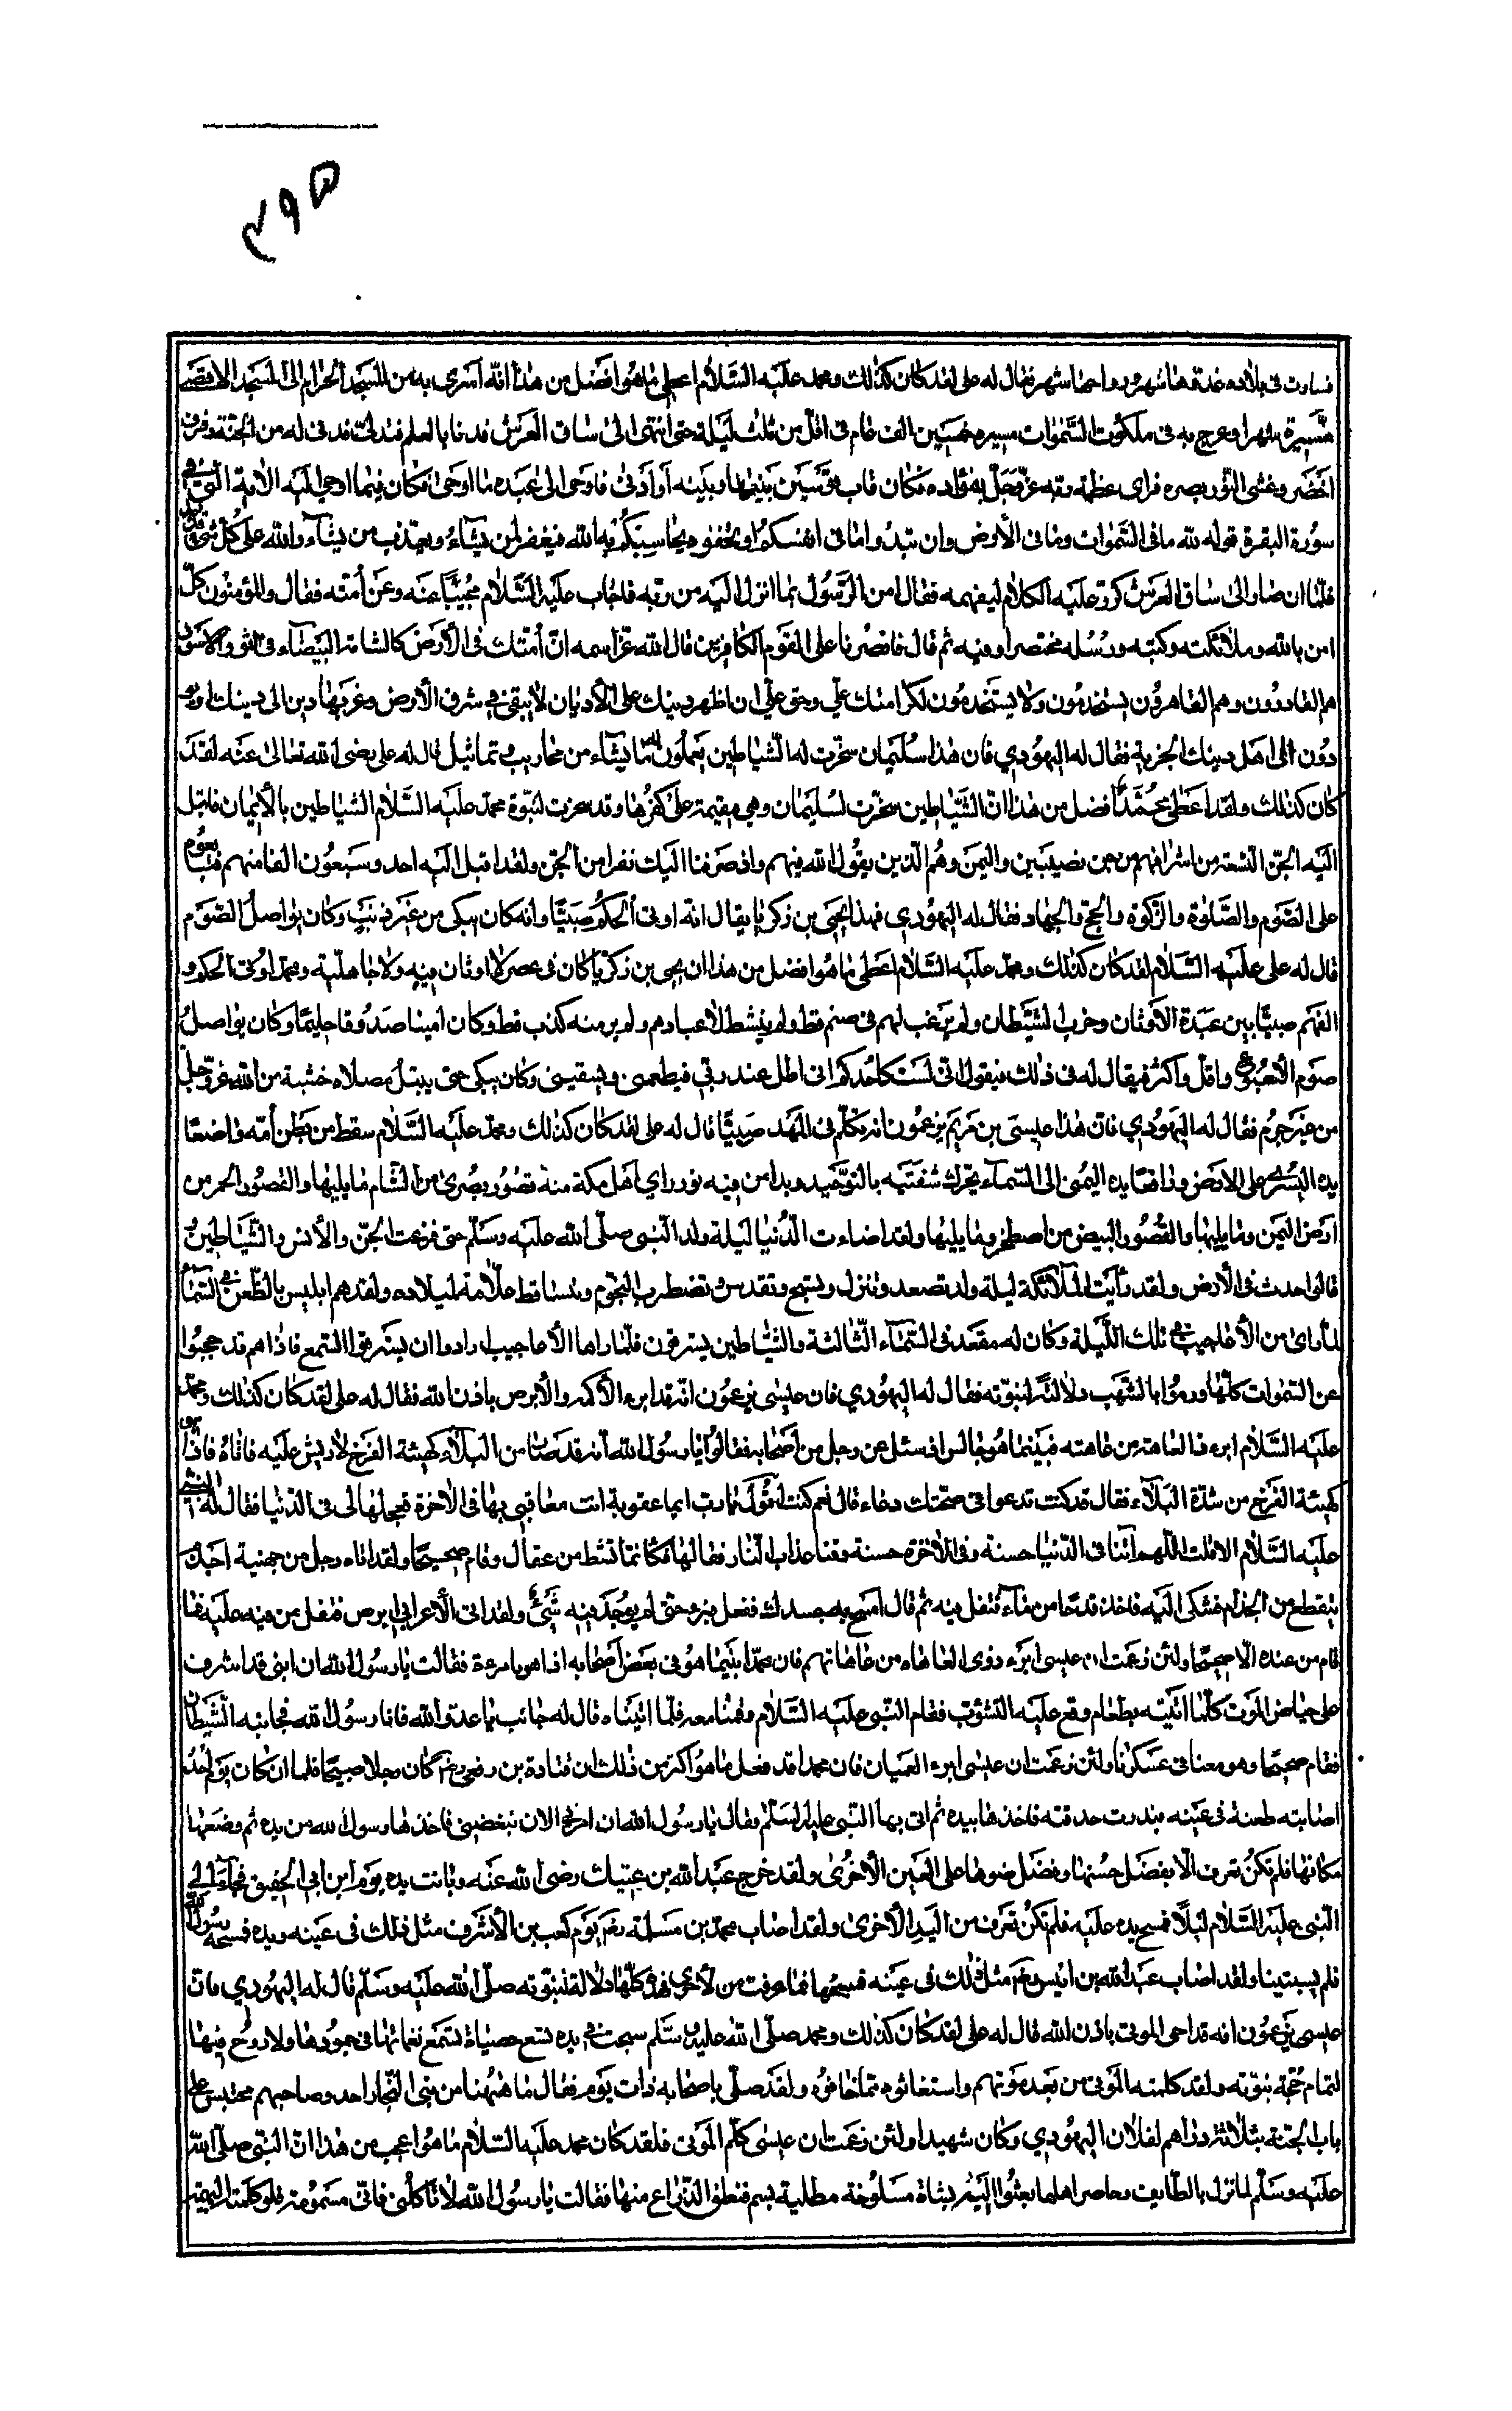 ٣٩٥
فسارت فى بلاده غدوها شهر ورواحها شهر فقال له على لقد كان كذلك ومحمد عليه السلام اعطى ما هو افضل من هذا انه اسرى به من المسجد الحرام الى المسجد الاقصى
مسيرة شهر وعرج به فى ملكوت السموات مسيرة خمسين الف عام فى اقل من ثلث ليلة حتى انتهى الى ساق العرش فدنا بالعلم فتدلى فدنى له من الجنة رفرف
اخضر وغشى النور بصره فراى عظمة ربه عز وجل بفؤاده فكان قاب قوسين بينها وبينه او ادنى فاوحى الى عبده ما اوحى فكان فيما اوحى اليه الاية التى فى
سورة البقرة قوله لله ما فى السموات وما فى الأرض وان تبدوا ما فى انفسكم او تخفوه يحاسبكم به الله فيغفر لمن يشاء ويعذب من يشاء والله على كل شئ قدير
فلما ان صار الى ساق العرش كرر عليه الكلام ليفهمه فقال امن الرسول بما انزل اليه من ربه فاجاب عليه السلام مجيبا عنه وعن أمته فقال والمؤمنون كل
امن بالله وملائكته وكتبه ورسله مختصر وفيه ثم قال فانصرنا على القوم الكافرين قال الله عز اسمه ان أمتك فى الأرض كالشامة البيضاء فى الثور الاسود
هم القادرون وهم القاهرون يستخدمون ولا يستخدمون لكرامتك علي وحق علي ان اظهر دينك على الأديان لا يبقى فى شرق الأرض وغربها دين الى دينك او يؤ
دون الى اهل دينك الجزية فقال له اليهودي فان هذا سليمان سخرت له الشياطين يعملون له ما يشاء من محاريب وتماثيل قال له على رضى الله تعالى عنه لقد
كان كذلك ولقد اعطى محمدا افضل من هذا ان الشياطين سخرت لسليمان وهي مقيمة على كفرها وقد سخرت لنبوة محمد عليه السلام الشياطين بالأيمان فاقبل
اليه الجن التسعة من اشرافهم من جن نصيبين واليمن وهم الذين يقول الله فيهم واذ صرفنا اليك نفرا من الجن ولقد اقبل اليه احد وسبعون الفا منهم فبايعوه
على الصوم والصلوة والزكوة والحج والجهاد فقال له اليهودي فهذا يحيى بن زكريا يقال انه اوتى الحكم صبيا وانه كان يبكى من غير ذنب وكان يواصل الصوم
قال له على عليه السلام لقد كان كذلك ومحمد عليه السلام اعطى ما هو افضل من هذا ان يحيى بن زكريا كان فى عصر لا اوثان فيه ولا جاهلية ومحمد اوتى الحكم و
الفهم صبيا بين عبدة الاوثان وحزب الشيطان ولم يرغب لهم فى صنم قط ولم ينشط لأعيادهم ولم ير منه كذب قط وكان امينا صدوقا حليما وكان يواصل
صوم الأسبوع واقل واكثر فيقال له فى ذلك فيقول انى لست كاحدكم انى اظل عند ربي فيطعمنى ويسقينى وكان يبكى حتى يبتل مصلاه خشية من الله عز وجل
من غير جرم فقال له اليهودي فان هذا عيسى بن مريم يزعمون انه تكلم فى المهد صبيا قال له على لقد كان كذلك ومحمد عليه السلام سقط من بطن أمه واضعا
يده اليسرى على الارض ورافعا يده اليمنى الى السماء يحرك شفتيه بالتوحيد وبدا من فيه نور راى اهل مكة منه قصور بصرى من الشام ما يليها والقصور الحمر من
ارض اليمن وما يليها والقصور البيض من اصطخر وما يليها ولقد اضاءت الدنيا ليلة ولد النبى صلى الله عليه وسلم حتى فزعت الجن والأنس والشياطين و
قالوا حدث فى الأرض ولقد رأيت الملائكة ليلة ولد تصعد وتنزل وتسبح وتقدس وتضطرب النجوم وتتساقط علامة لميلاده ولقد هم ابليس بالظعن فى السماء
لما راى من الأعاجيب فى تلك الليلة وكان له مقعد فى السماء الثالثة والشياطين يسترقون فلما راها الأعاجيب ارادوا ان يسترقوا السمع فاذا هم قد حجبوا
عن السموات كلها ورموا بالشهب دلالة لنبوته فقال له اليهودي فان عيسى يزعمون انه قد ابرء الأكمه والأبرص باذن الله فقال له على لقد كان كذلك ومحمد
عليه السلام ابرء ذا العاهة من عاهته فبينما هو جالس اذ سئل عن رجل من أصحابه فقالوا يا رسول الله انه قد صار من البلاء كهيئة الفرخ لا ريش عليه فاتاه فاذا هو
كهيئة الفرخ من شدة البلاء فقال قد كنت تدعوا فى صحتك دعاء قال نعم كنت اقول يا رب ايما عقوبة انت معاقبى بها فى الاخرة فعجلها لى فى الدنيا فقال له النبى
عليه السلام الا قلت اللهم اتنا فى الدنيا حسنة وفى الاخرة حسنة وقنا عذاب النار فقالها فكانما نشط من عقال وقام صحيحا ولقد اتاه رجل من جهنية اجذم
يتقطع من الجذام فشكى اليه فاخذ قدحا من ماء فتفل فيه ثم قال امسح به جسدك ففعل فبرء حتى لم يوجد فيه شئ ولقد اتى الأعرابى ابرص فتفل من فيه عليه فما
قام من عنده الا صحيحا ولئن زعمت ان عيسى ابرء ذوى العاهات من عاهاتهم فان محمدا بينما هو فى بعض أصحابه اذا هو بامرءة فقالت يا رسول الله ان ابنى قد اشرف
على حياض الموت كلما اتيته بطعام وقع عليه التثؤب فقام النبى عليه السلام وقمنا معه فلما اتيناه قال له جانب يا عدو الله فانا رسول الله فجانبه الشيطان
فقام صحيحا وهو معنا فى عسكرنا ولئن زعمت ان عيسى ابرء العميان فان محمدا قد فعل ما هو اكثر من ذلك ان قتادة بن ربعى كان رجلا صبيحا فلما ان كان يوم أحد
اصابته طعنة فى عينه فبدرت حدقته فاخذها بيده ثم اتى بها النبى عليه السلم وقال يا رسول الله ان امرأتى الان تبغضنى فاخذها رسول الله من يده ثم وضعها
مكانها فلم تكن تعرف الا بفضل حسنها وفضل ضوئها على العين الأخرى ولقد خرج عبد الله بن عتيك رضى الله عنه وبانت يده يوم ابن ابى الحقيق فجاء الى
النبى عليه السلام ليلا فمسح يده عليه فلم تكن تعرف من اليد الأخرى ولقد اصاب محمد بن مسلمة يوم كعب بن الأشرف مثل ذلك فى عينه ويده فمسحه رسول الله
فلم يستبينا ولقد اصاب عبد الله بن انيس مثل ذلك فى عينه فمسحها فما عرفت من الأخرى فهذه كلها دلالة لنبوته صلى الله عليه وسلم قال له اليهودي فان
عيسى يزعمون انه قد احى الموتى باذن الله قال له على لقد كان كذلك ومحمد صلى الله عليه وسلم سبحت فى يده تسع حصياة تسمع نغماتها فى جمودها ولا روح فيها
لتمام حجة نبوته ولقد كلمته الموتى من بعد موتهم واستغاثوه مما خافوه ولقد صلى باصحابه ذات يوم فقال ما ههنا من بنى النجار احد وصاحبهم محتبس على
باب الجنة بثلاثة دراهم لفلان اليهودي وكان شهيدا ولئن زعمت ان عيسى كلم الموتى فلقد كان محمد عليه السلام ما هو اعجب من هذا ان النبى صلى الله
عليه وسلم لما نزل بالطايف وحاصر اهلها بعثوا اليه بشاة مسلوخة مطلية بسم فنطق الذراع منها فقالت يا رسول الله لا تأكلنى فانى مسمومة فلو كلمته البهيمة